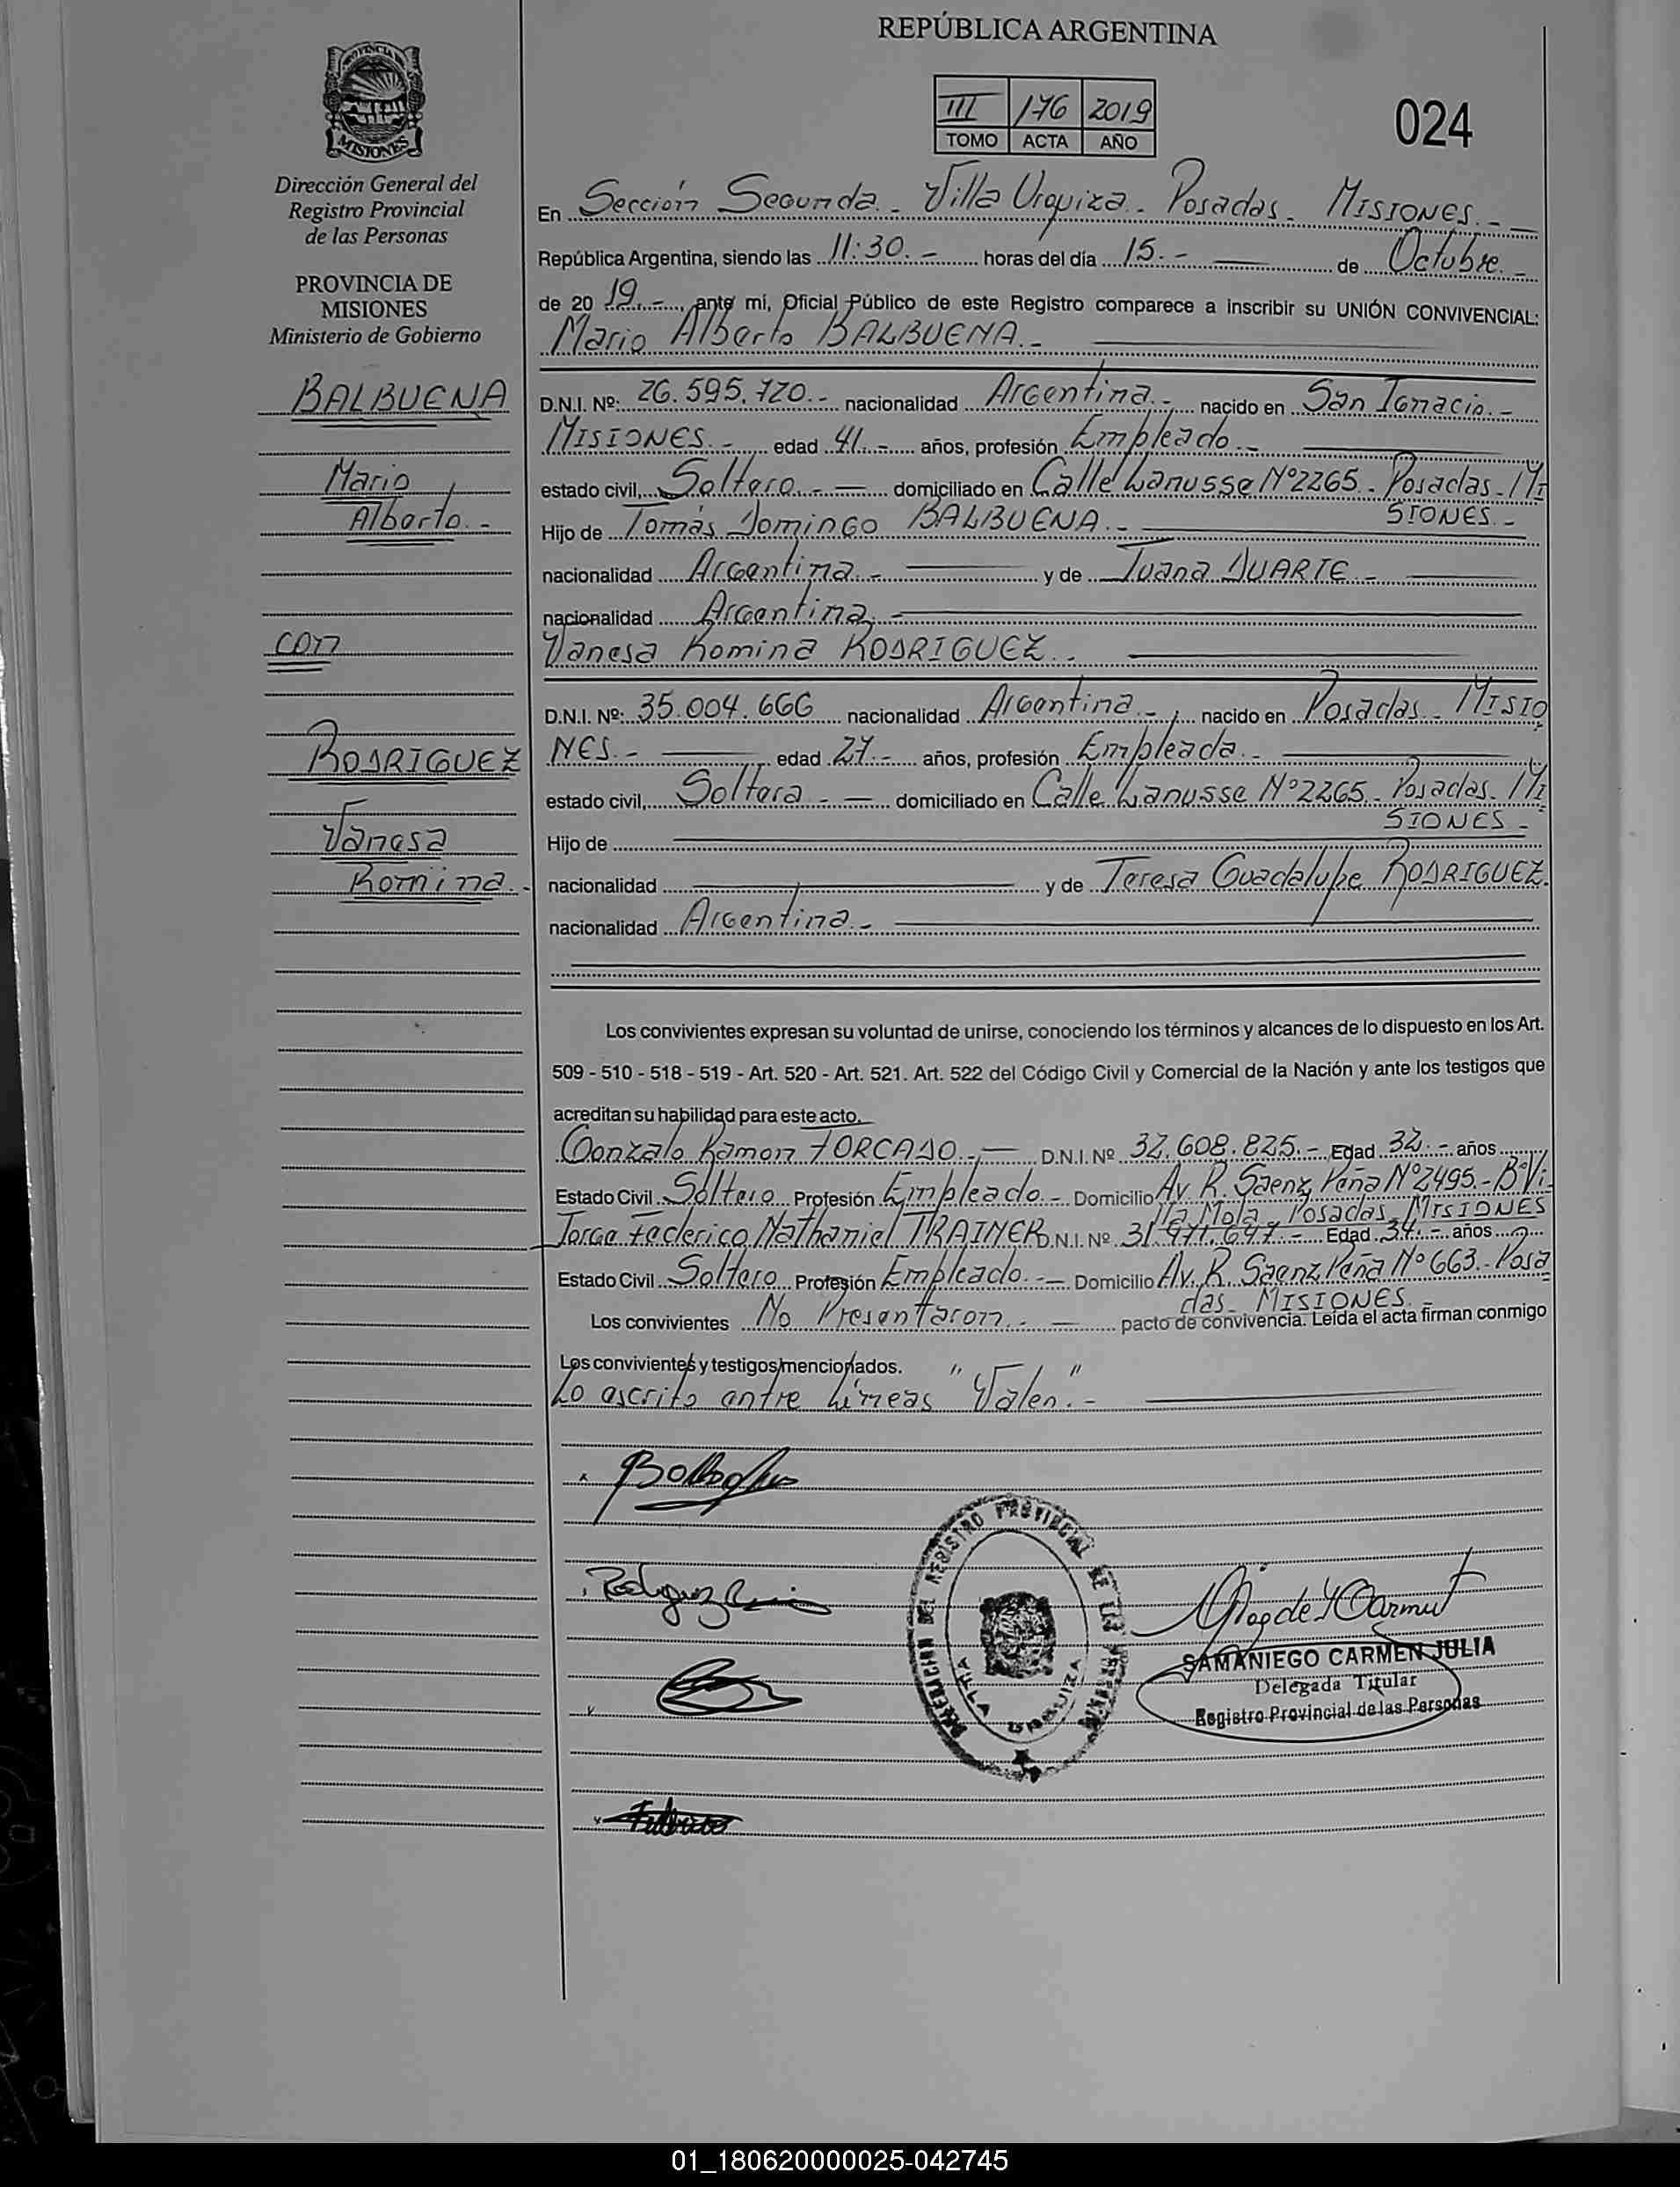 REPÚBLICA ARGENTINA
III 176 2019
TOMO ACTA AÑO
024
PROVINCIA
MISIONES
Dirección General del
Registro Provincial
de las Personas
PROVINCIA DE
MISIONES
Ministerio de Gobierno
BALBUENA
Mario
Alberto.-
con
RODRIGUEZ
Vanesa
Romina.-
En Sección Segunda - Villa Urquiza - Posadas - MISIONES.-
República Argentina, siendo las 11:30.- horas del día 15.- de Octubre.-
de 20 19.-, ante mí, Oficial Público de este Registro comparece a inscribir su UNIÓN CONVIVENCIAL:
Mario Alberto BALBUENA.-
D.N.I. Nº: 26.595.120.- nacionalidad Argentina.- nacido en San Ignacio.-
MISIONES.- edad 41.- años, profesión Empleado.-
estado civil, Soltero.- domiciliado en Calle Lanusse Nº2265 - Posadas - MI
SIONES.-
Hijo de Tomás Domingo BALBUENA.-
nacionalidad Argentina.- y de Juana DUARTE.-
nacionalidad Argentina.-
Vanesa Romina RODRIGUEZ.-
D.N.I. Nº: 35.004.666 nacionalidad Argentina.- nacido en Posadas - MISIO
NES.- edad 27.- años, profesión Empleada.-
estado civil, Soltera.- domiciliado en Calle Lanusse Nº2265 - Posadas - MI
SIONES -
Hijo de
nacionalidad y de Teresa Guadalupe RODRIGUEZ.
nacionalidad Argentina.-
Los convivientes expresan su voluntad de unirse, conociendo los términos y alcances de lo dispuesto en los Art.
509 - 510 - 518 - 519 - Art. 520 - Art. 521. Art. 522 del Código Civil y Comercial de la Nación y ante los testigos que
acreditan su habilidad para este acto.
Gonzalo Ramon TORCADO.- D.N.I. Nº 32.608.825.- Edad 32.- años
Estado Civil Soltero Profesión Empleado.- Domicilio Av. R. Saenz Peña Nº2495.- Bº Vi
lla Mola, Posadas, MISIONES
Jorge Federico Nathaniel TRAINER D.N.I. Nº 31.971.697.- Edad 34.- años
Estado Civil Soltero Profesión Empleado.- Domicilio Av. R. Saenz Peña Nº 663.- Posa
das - MISIONES.-
Los convivientes No Presentaron.- pacto de convivencia. Leída el acta firman conmigo
Los convivientes y testigos mencionados.
Lo escrito entre líneas "Valen".-
DELEGACION DEL REGISTRO PROVINCIAL DE LAS PERSONAS
VILLA URQUIZA
SAMANIEGO CARMEN JULIA
Delegada Titular
Registro Provincial de las Personas
01_180620000025-042745